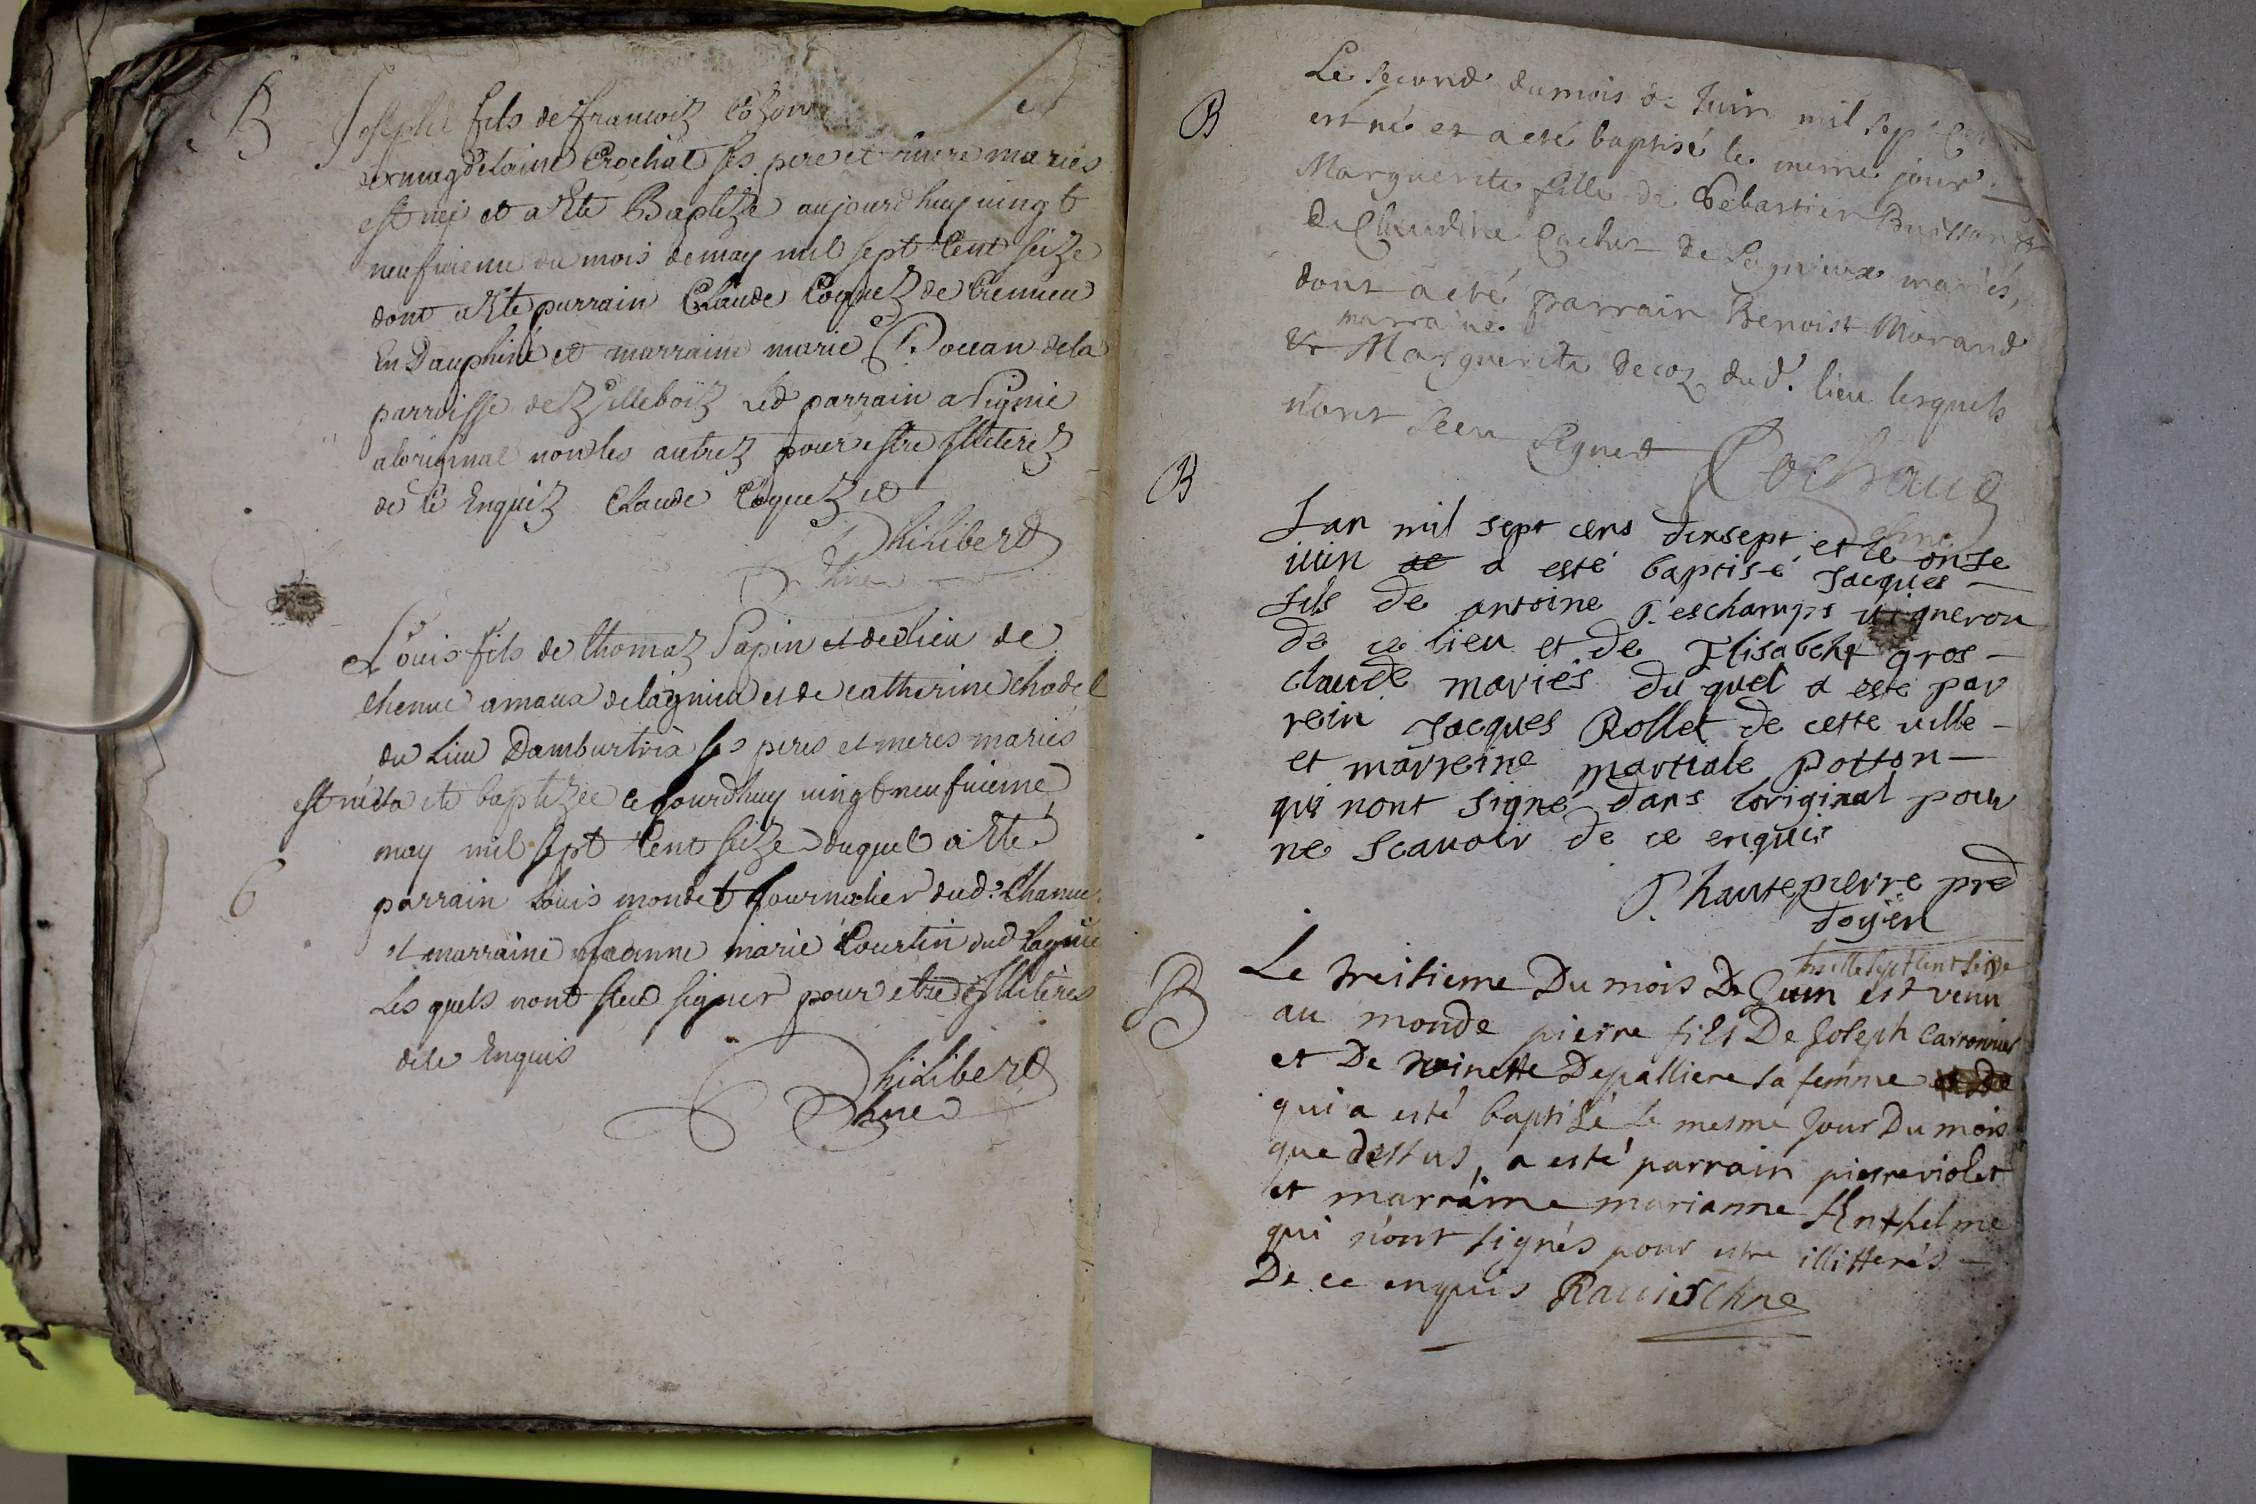 B
Joseph fils de francoiz et
de magdelaine Crochat ses pere et mere mariés
est nei et a Ete Baptize aujourdhuy vingt
neufvieme du mois de may mil sept Cent seize
dont a Ete parrain Claude Coquez de Cremieu
En Dauphiné et marraine marie de la
parroisse de Villeboiz Led parrain a Signé
a loriginal non les autrez pour estre Illiterez
de ce Enquiz Claude Coquez et
Philibert
Louis fils de thomaz Papin de
chenue amaux de lagnieu et de catherine chodel
du Lieu Dambutrix ses peres et meres mariés
est né et a ete baptizée ce jourdhuy vingt neufvieme
may mil sept Cent seize duquel a Ete
6
parrain Louis mondet fournalier dud: Chanue
et marraine Jeanne marie Courtin dud Lagnie
Les quels nont sceu signer pour etre Illiteres
de ce Enquis
Philibert
B
Le second du mois de Juin mil sept
est né et a eté baptisé le meme jour
Marguerite fille de Sebastien Buisson et
de Claudine Cachet de Lagnieux mariés,
dont a eté parrain Benoist Morand
marraine
& Marguerite Decoz dud. lieu lesquels
n'ont sceu signer
Cochaud
B
Lan mil sept cens dixsept et le onze
iuin a esté baptisé Jacques
fils de antoine Deschamps vigneron
de ce lieu et de Elisabeht gros-
claude mariés du quel a esté par
rein Jacques Rollet de cette ville
et marreine martiale Potton
qui nont signé dans loriginal pour
ne scavoir de ce enquis
P. hautepierre pred
doyen
mille sept cent seize
B
Le treisieme Du mois De Juin est venu
au monde pierre fils De Joseph Carronnier
et De Depalliere sa femme
qui a esté baptisé Le mesme Jour Du mois
que dessus, a esté parrain pierre violet
et marraine marianne Anthelme
qui n'ont signés pour estre illitterés
De ce enquis Ravier Chne